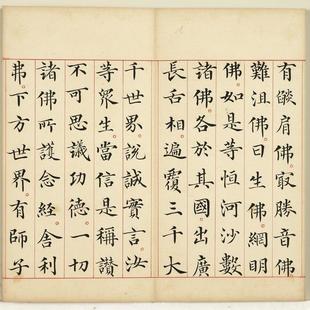 有燄肩佛。㝡勝音佛。
難沮佛。日生佛。網明
佛。如是等恒河沙數
諸佛。各於其國。出廣
長舌相。遍覆三千大
千世界。說誠實言。汝
等眾生。當信是稱讚
不可思議功德。一切
諸佛所護念經。舍利
弗。下方世界。有師子